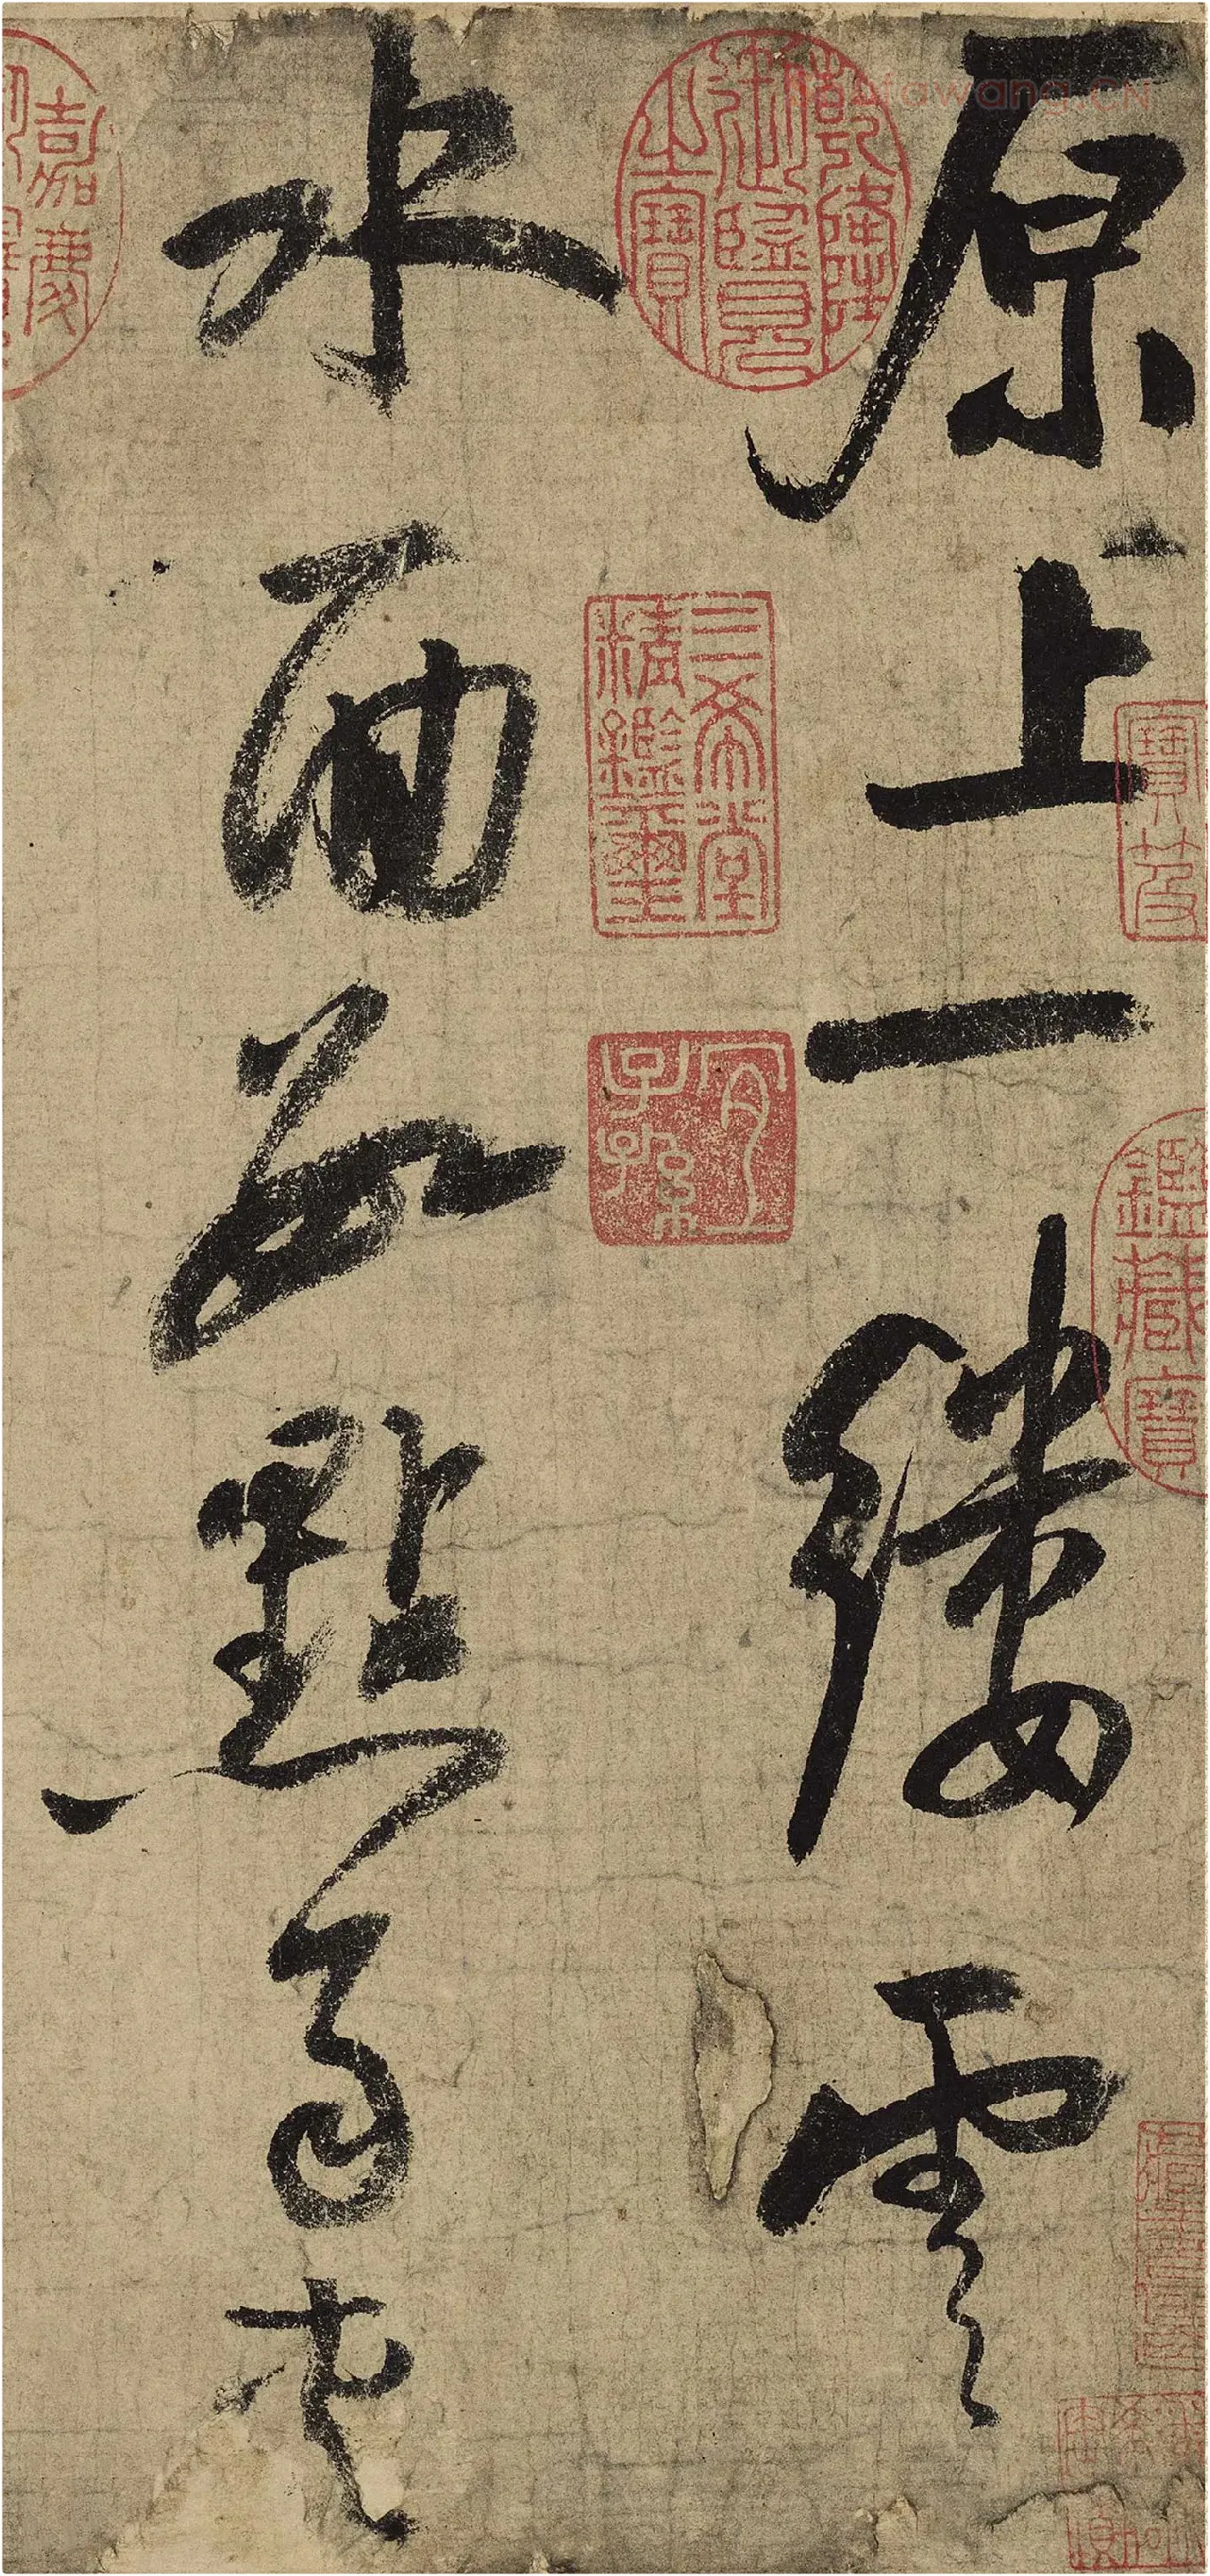 原上一縷雲
水面數點雨夾
乾隆御覽之寶
三希堂精鑑璽
宜子孫
寶笈
鑑藏寶
嘉慶